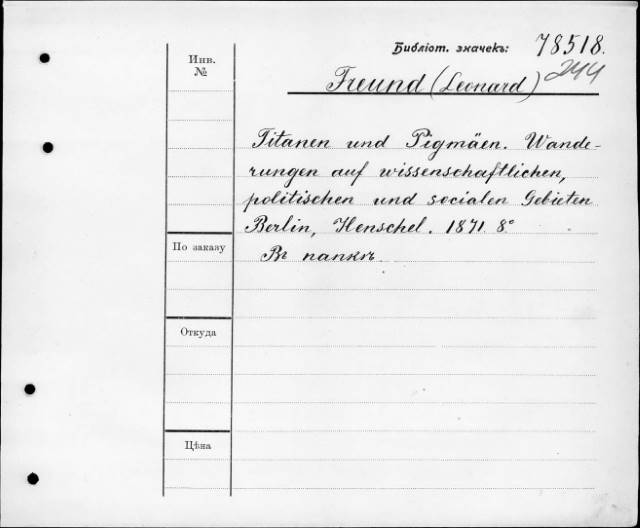 Библіот. значекъ: 78518.
244
Инв.
№
Freund (Leonard)
Titanen und Pigmäen. Wande-
rungen auf wissenschaftlichen,
politischen und socialen Gebieten
Berlin, Henschel. 1871. 8°
Въ папкѣ.
По заказу
Откуда
Цѣна